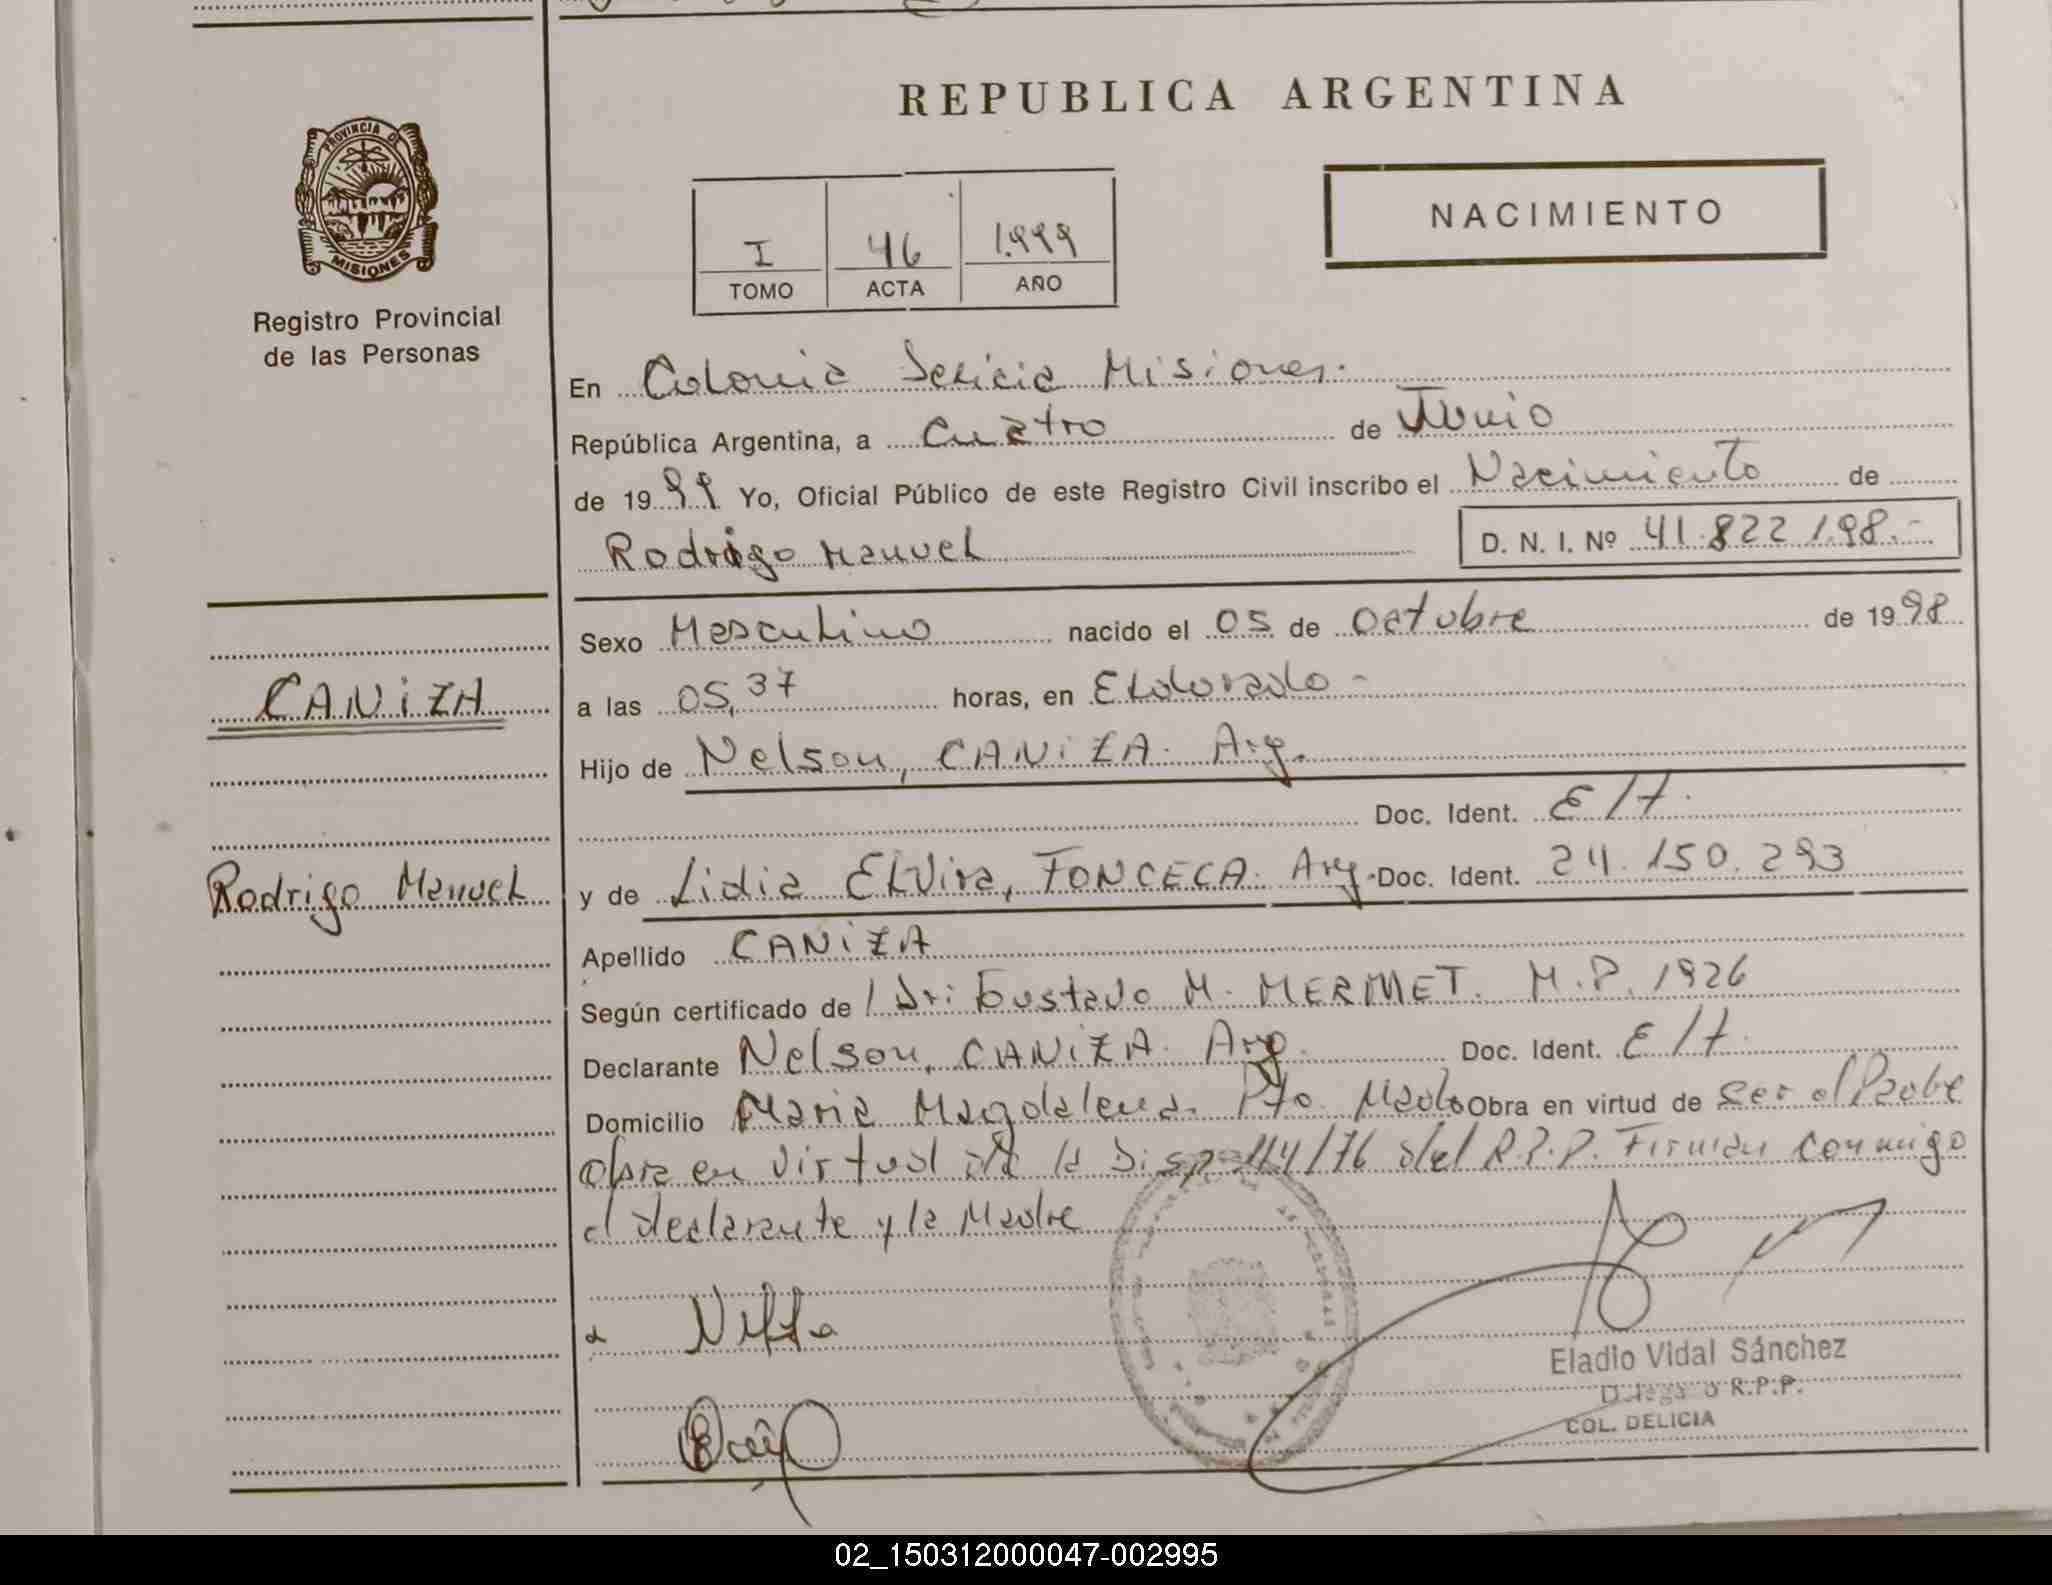 REPUBLICA ARGENTINA
PROVINCIA DE
MISIONES
Registro Provincial
de las Personas
NACIMIENTO
I 46 1.999
TOMO ACTA AÑO
En Colonia Delicia Misiones.
República Argentina, a Cuatro de Junio
de 1999 Yo, Oficial Público de este Registro Civil inscribo el Nacimiento de
Rodrigo Manuel D. N. I. Nº 41.822.198.-
Sexo Masculino nacido el 05 de octubre de 1998
CANiZA
a las 05,37 horas, en Eldorado -
Hijo de Nelson, CANiZA. Arg.
Doc. Ident. E/t.
Rodrigo Manuel
y de Lidia ELVira, FONCECA. Arg. Doc. Ident. 24.150.293
Apellido CANiZA
Según certificado de / Dr: Gustavo M. MERMET. M.P. 1926
Declarante Nelson, CANiZA. Arg. Doc. Ident. E/t.
Domicilio Maria Magdalena. Pto. Mado Obra en virtud de ser el Padre
obra en virtud de la Disp 114/76 del R.P.P. Firman conmigo
el declarante y la Madre
Eladio Vidal Sánchez
R.P.P.
COL. DELICIA
02_150312000047-002995